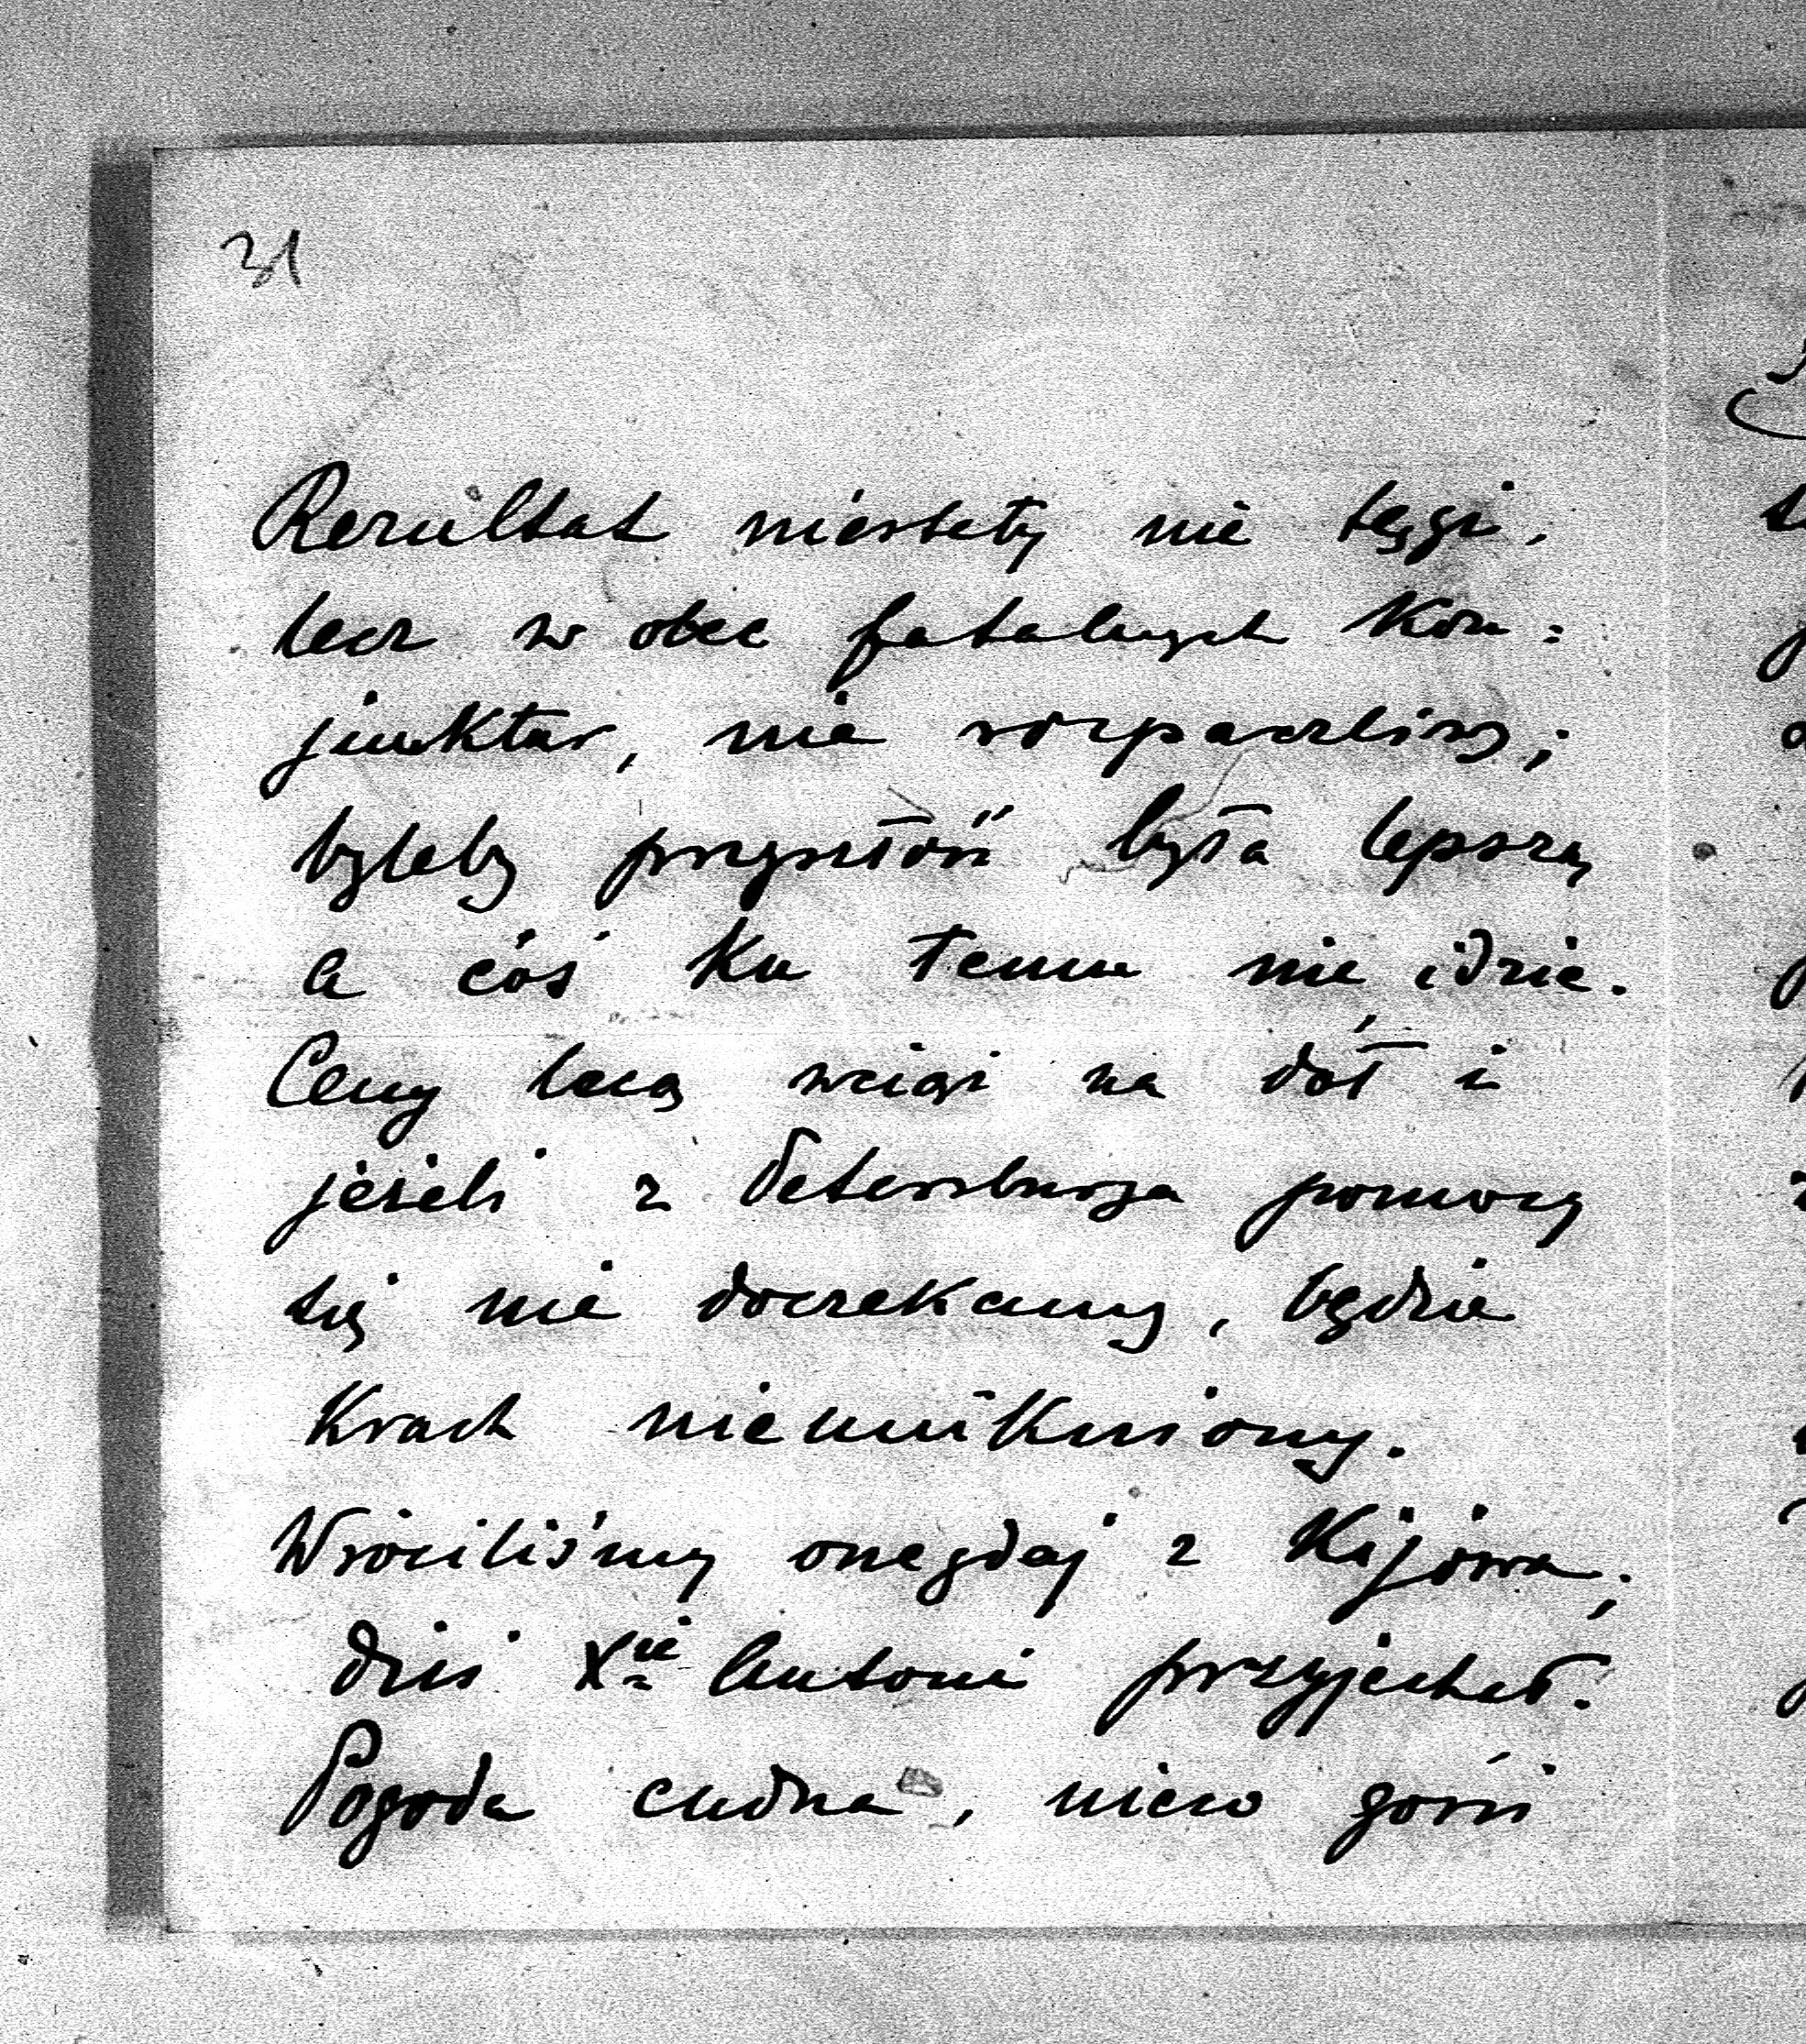 31
Rezultat niestety nie tęgi,
lecz w obec fatalnych kon=
junktur, nie rozpaczliwy;
byleby przyszłość była lepszą
a cóś ku temu nie idzie.
Ceny lecą wciąż na dół i
jeżeli z Petersburga pomocy
się nie doczekamy, będzie
Krach nieunikniony.
Wróciliśmy onegdaj z Kijowa;
dziś Xże Antoni przyjechał.
Pogoda cudna, nieco gorsi